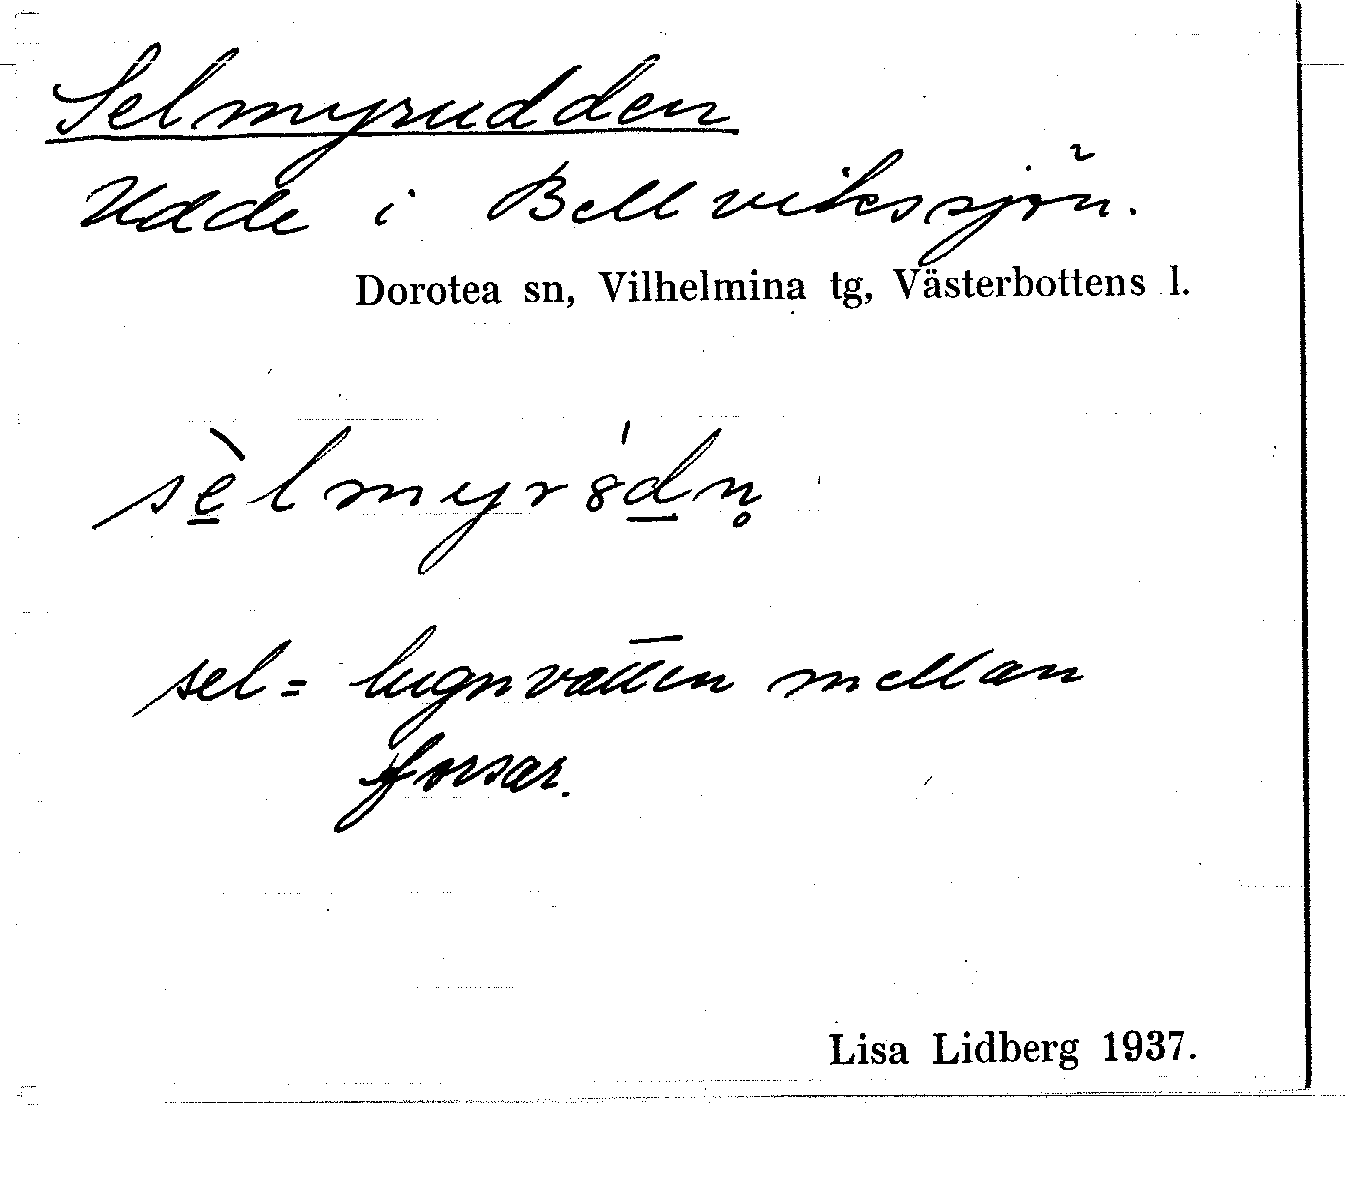 Selmyrudden
Udde i Bellvikssjön.
Dorotea sn, Vilhelmina tg, Västerbottens l.
sè̲lmyr8́d̲n̥
sel = lugnvatten mellan
forsar.
Lisa Lidberg 1937.